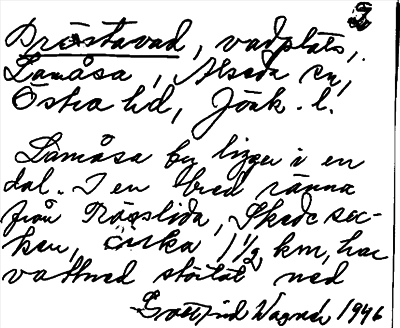 I
Pröstavad, vadplats,
Lamåsa, Alseda sn,
Östra hd, Jönk. l.
Lamåsa by ligger i en
dal. I en bred ränna
från Rögslida, Skede soc-
ken, cirka 1 1/2 km, har
vattnet störtat ned
Gottfrid Wagnér 1946